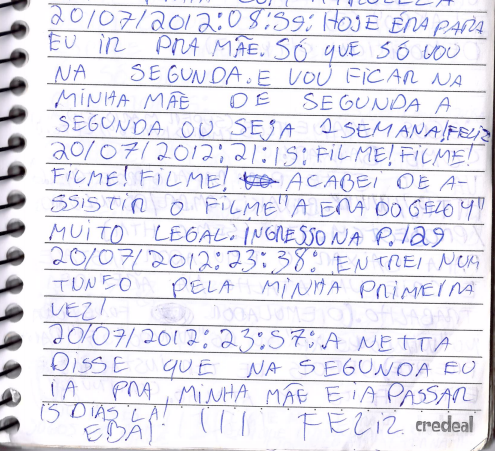 20/07/2012:08:39: HOJE ERA PARA
EU IR PRA MÃE. SÓ QUE SÓ VOU
NA SEGUNDA. E VOU FICAR NA
MINHA MÃE DE SEGUNDA A
SEGUNDA OU SEJA 1 SEMANA! FELIZ
20/07/2012:21:15: FILME! FILME!
FILME! FILME! ACABEI DE A-
SSISTIR O FILME "A ERA DO GELO 4"
MUITO LEGAL. INGRESSO NA P. 129
20/07/2012:23:38: ENTREI NUM
TUNEO PELA MINHA PRIMEIRA
VEZ!
20/07/2012:23:57: A NETTA
DISSE QUE NA SEGUNDA EU
IA PRA MINHA MÃE E IA PASSAR
15 DIAS LÁ!
EBA! !!! FELIZ credeal